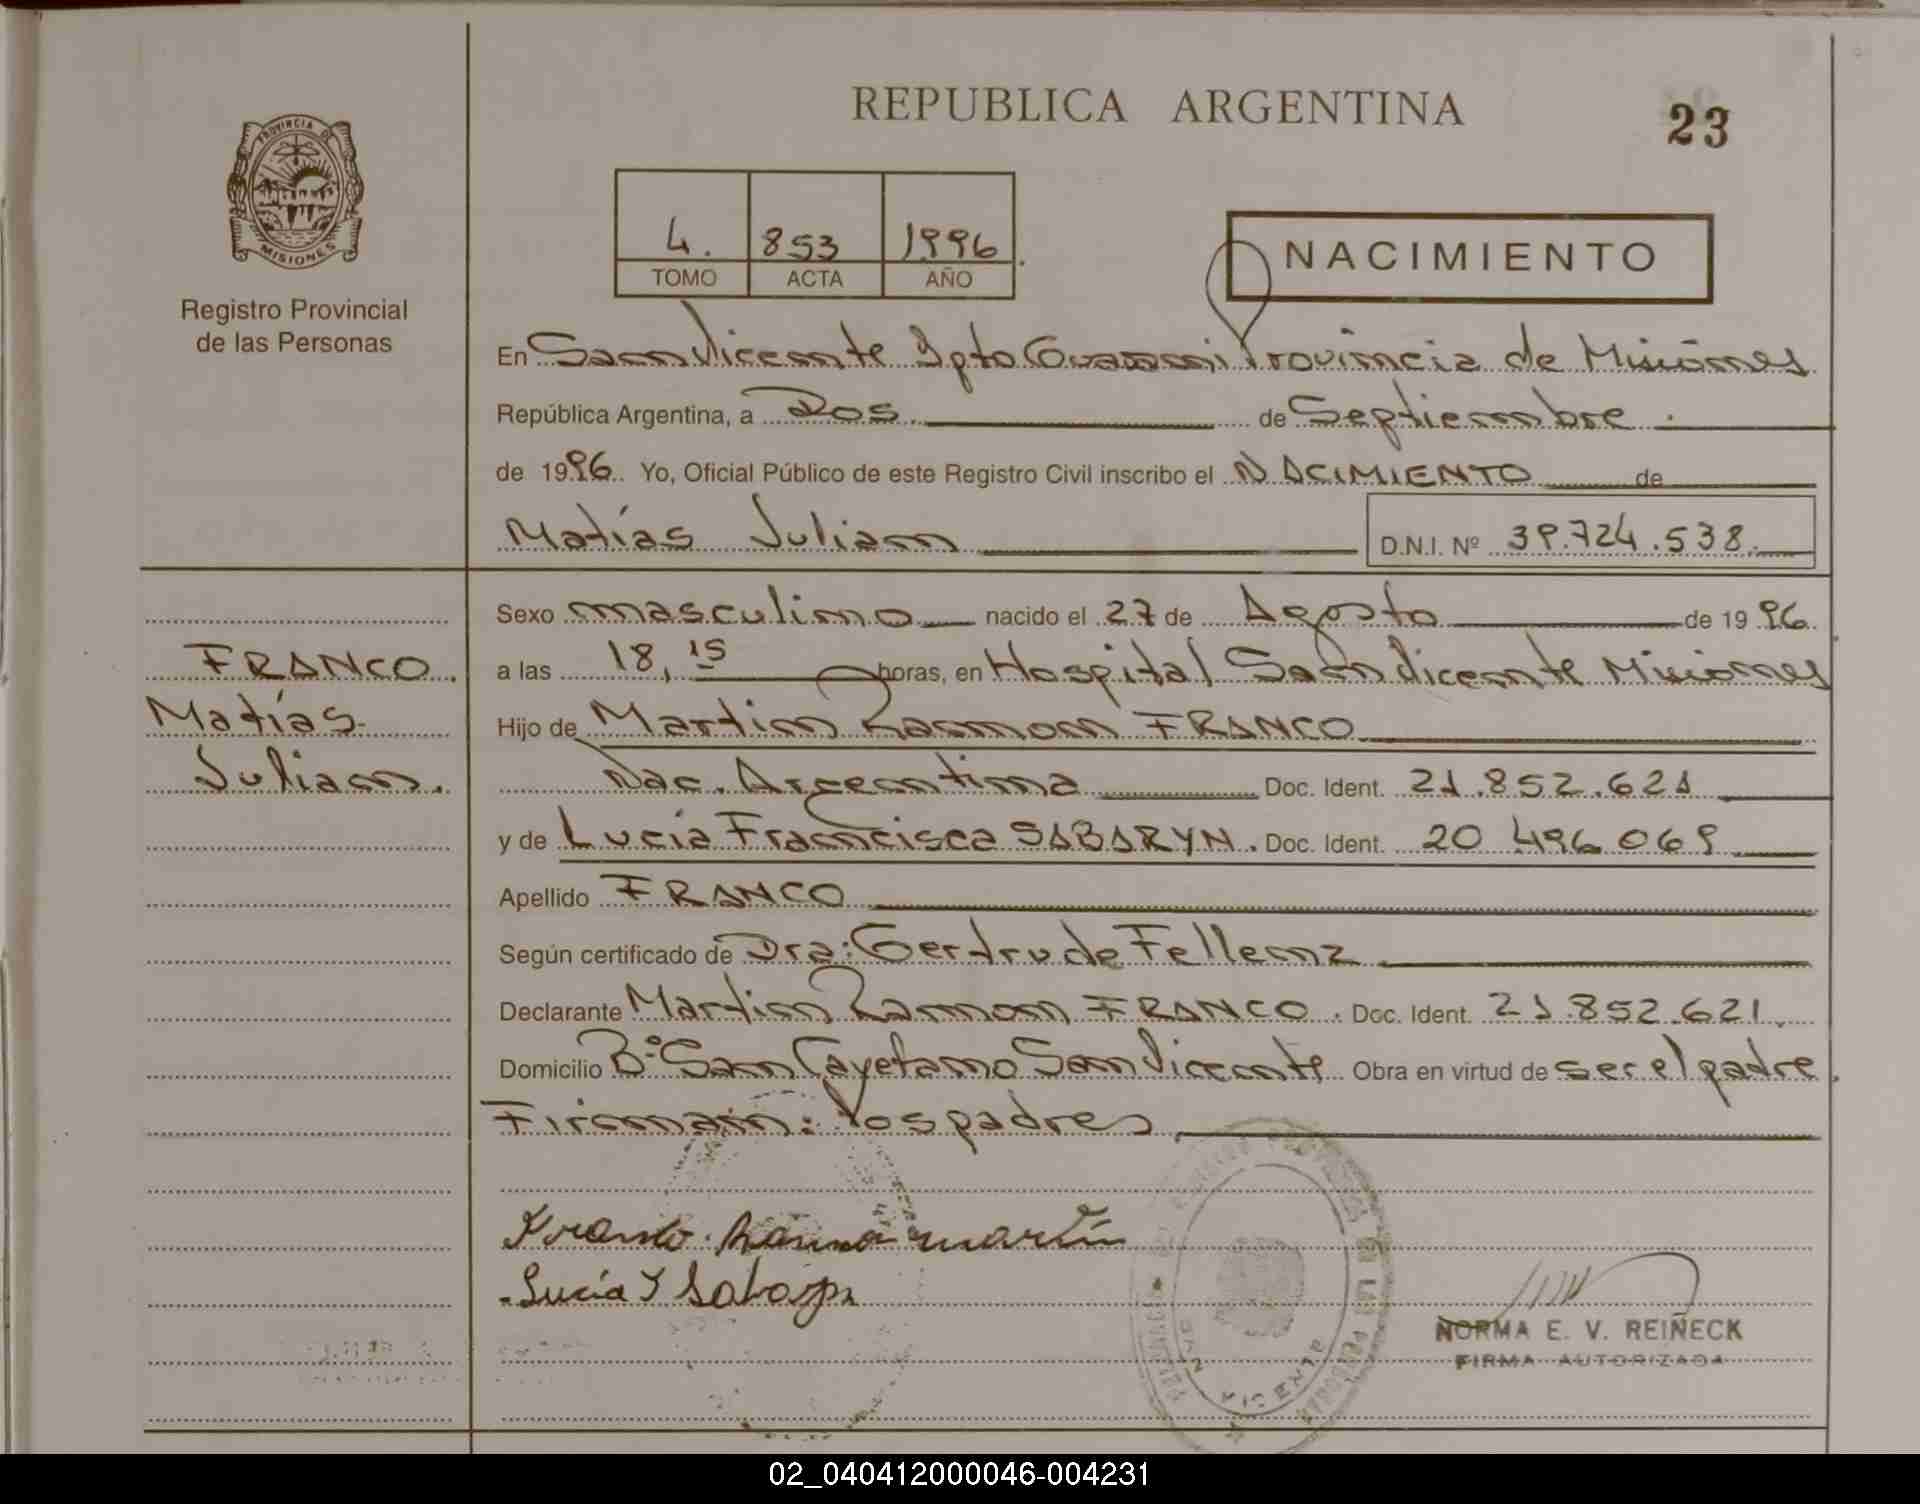 PROVINCIA DE
MISIONES
Registro Provincial
de las Personas
REPUBLICA ARGENTINA
23
4. 853 1996.
TOMO ACTA AÑO
NACIMIENTO
En San Vicente Dpto Guarani Provincia de Misiones
República Argentina, a Dos de Septiembre.
de 1996. Yo, Oficial Público de este Registro Civil inscribo el NACIMIENTO de
Matías Julian D.N.I. Nº 39.724.538.
Sexo masculino nacido el 27 de Agosto de 1996.
a las 18,15 horas, en Hospital San Vicente Misiones
Hijo de Martin Ramon FRANCO
Nac. Argentina Doc. Ident. 21.852.621
y de Lucía Francisca SABARYN. Doc. Ident. 20 496 069
Apellido FRANCO
Según certificado de Dra: Gertrude Fellenz
Declarante Martin Ramon FRANCO. Doc. Ident. 21.852.621.
Domicilio Bº San Cayetano San Vicente Obra en virtud de ser el padre.
Firman: los padres
FRANCO.
Matías
Julian.
Franco Ramon martín
Lucía
NORMA E. V. REINECK
FIRMA AUTORIZADA
02_040412000046-004231